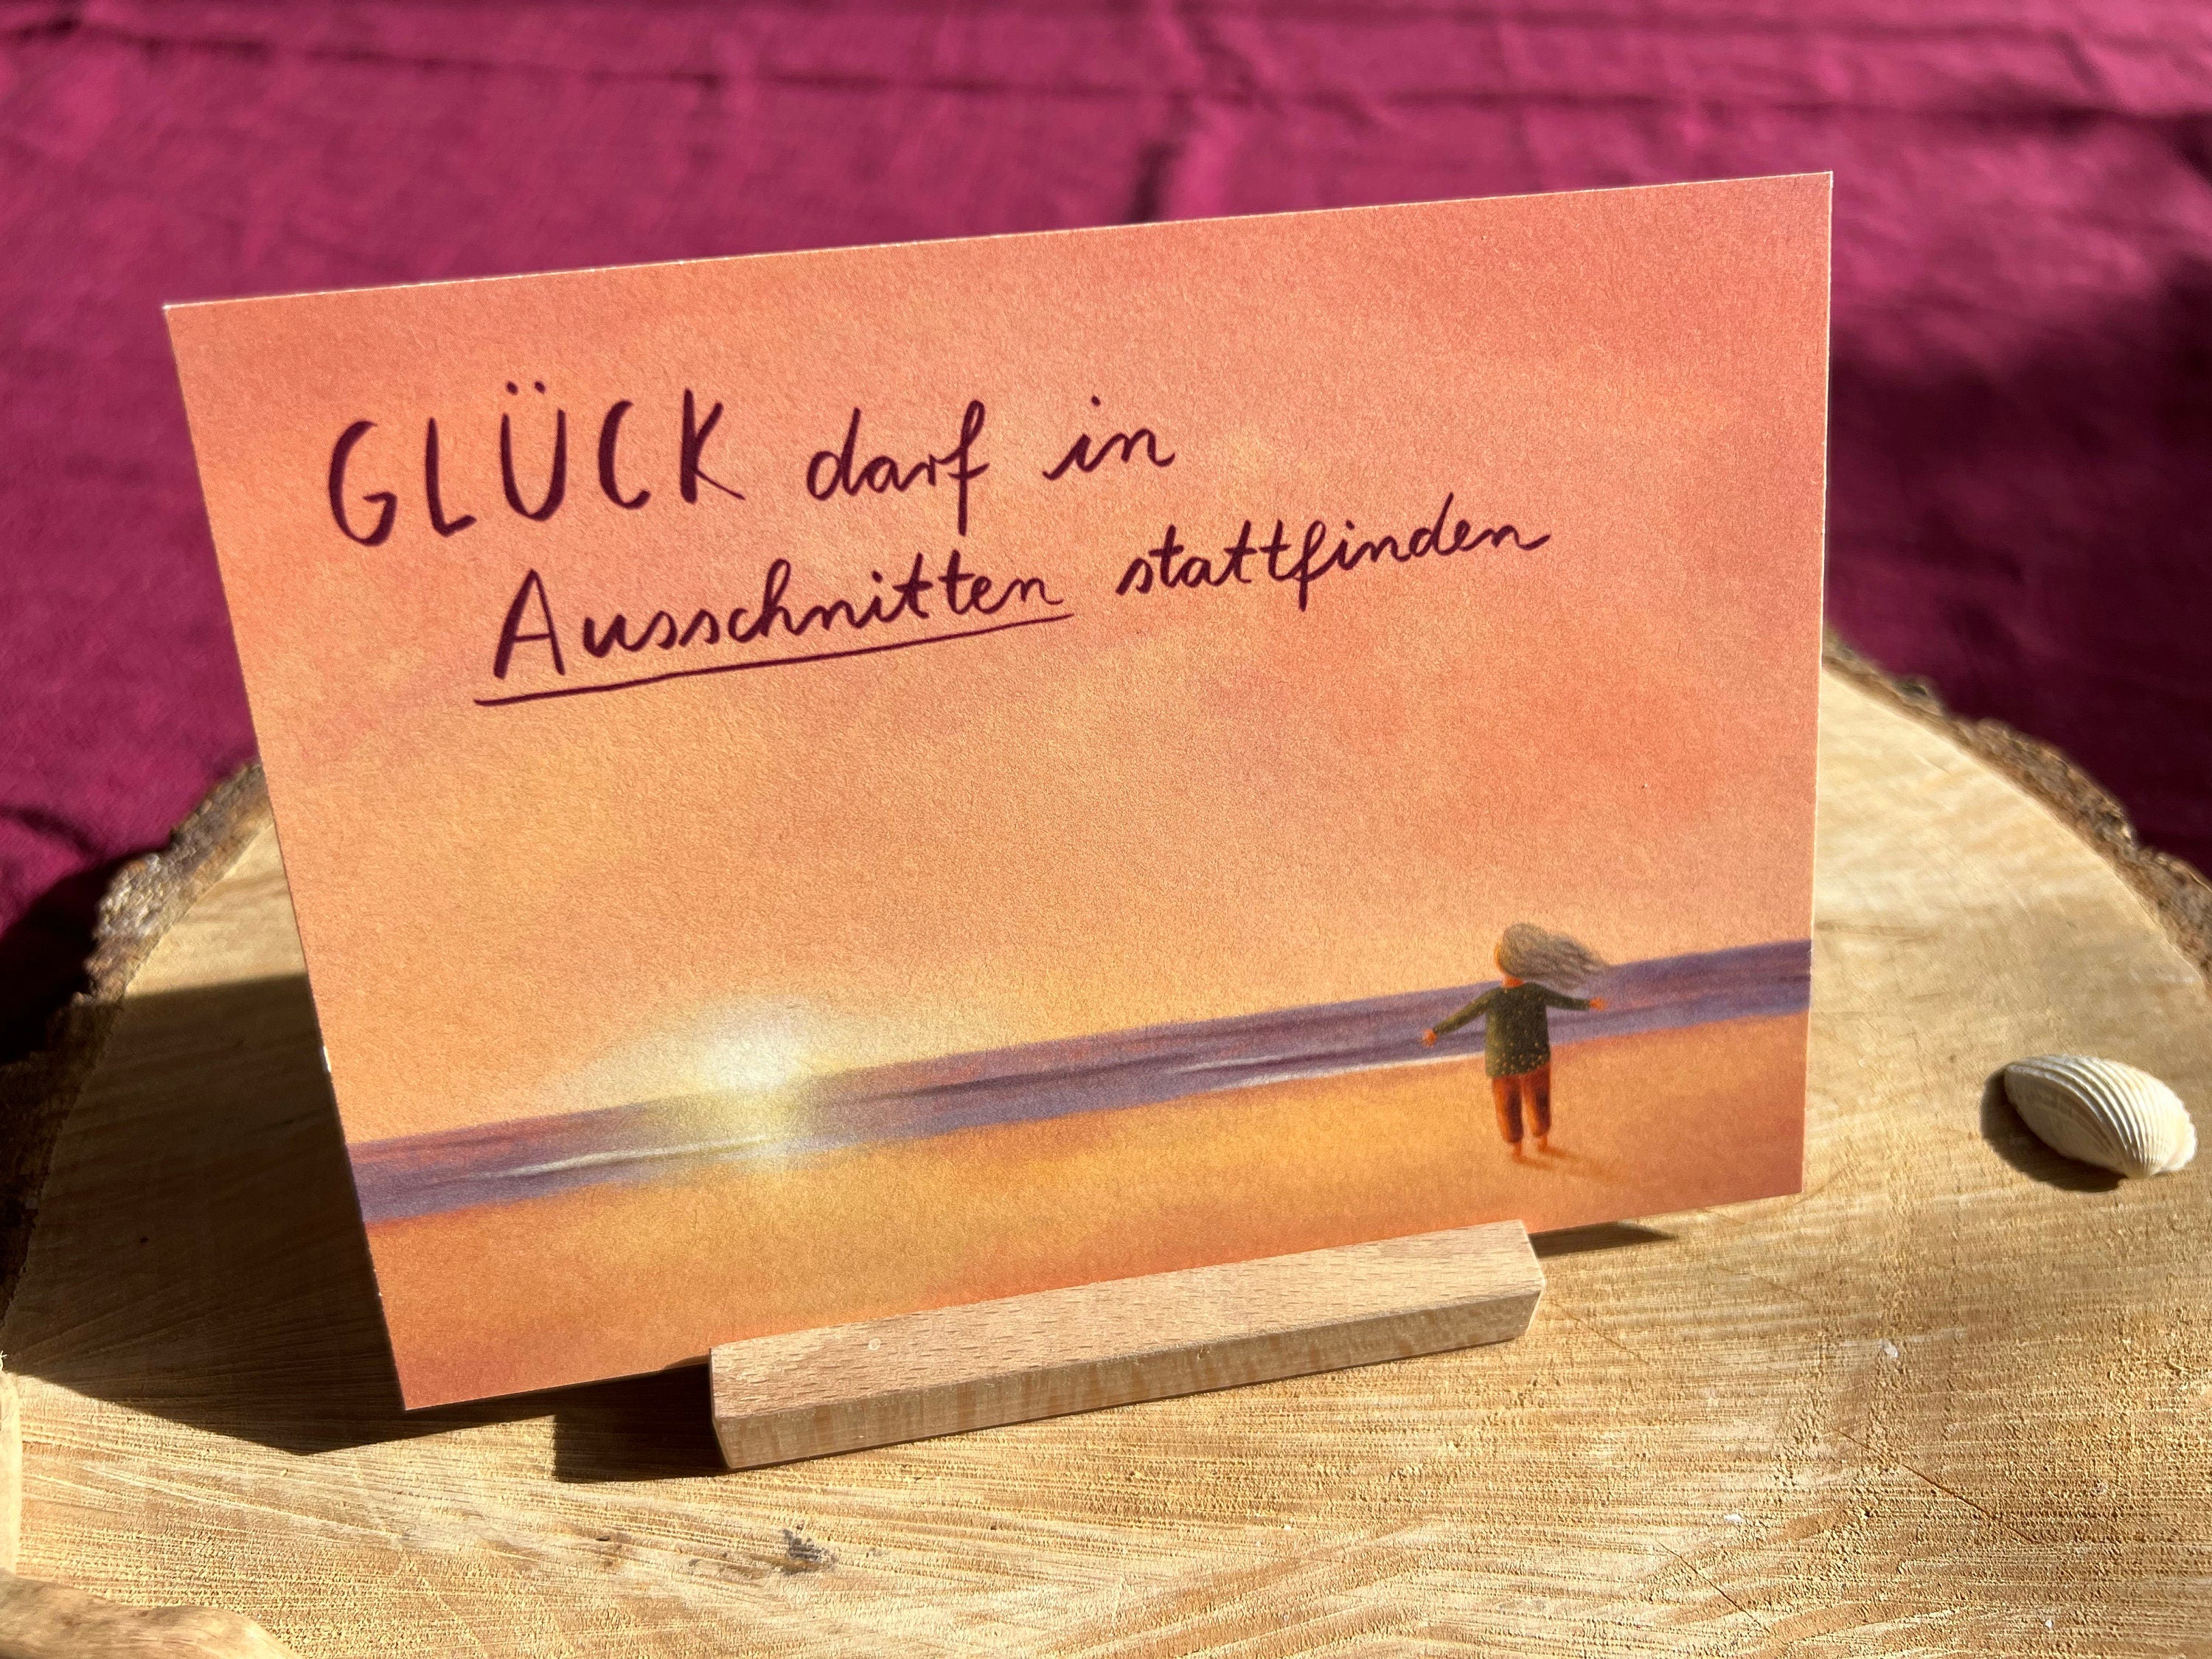 GLÜCK darf in
Ausschnitten stattfinden